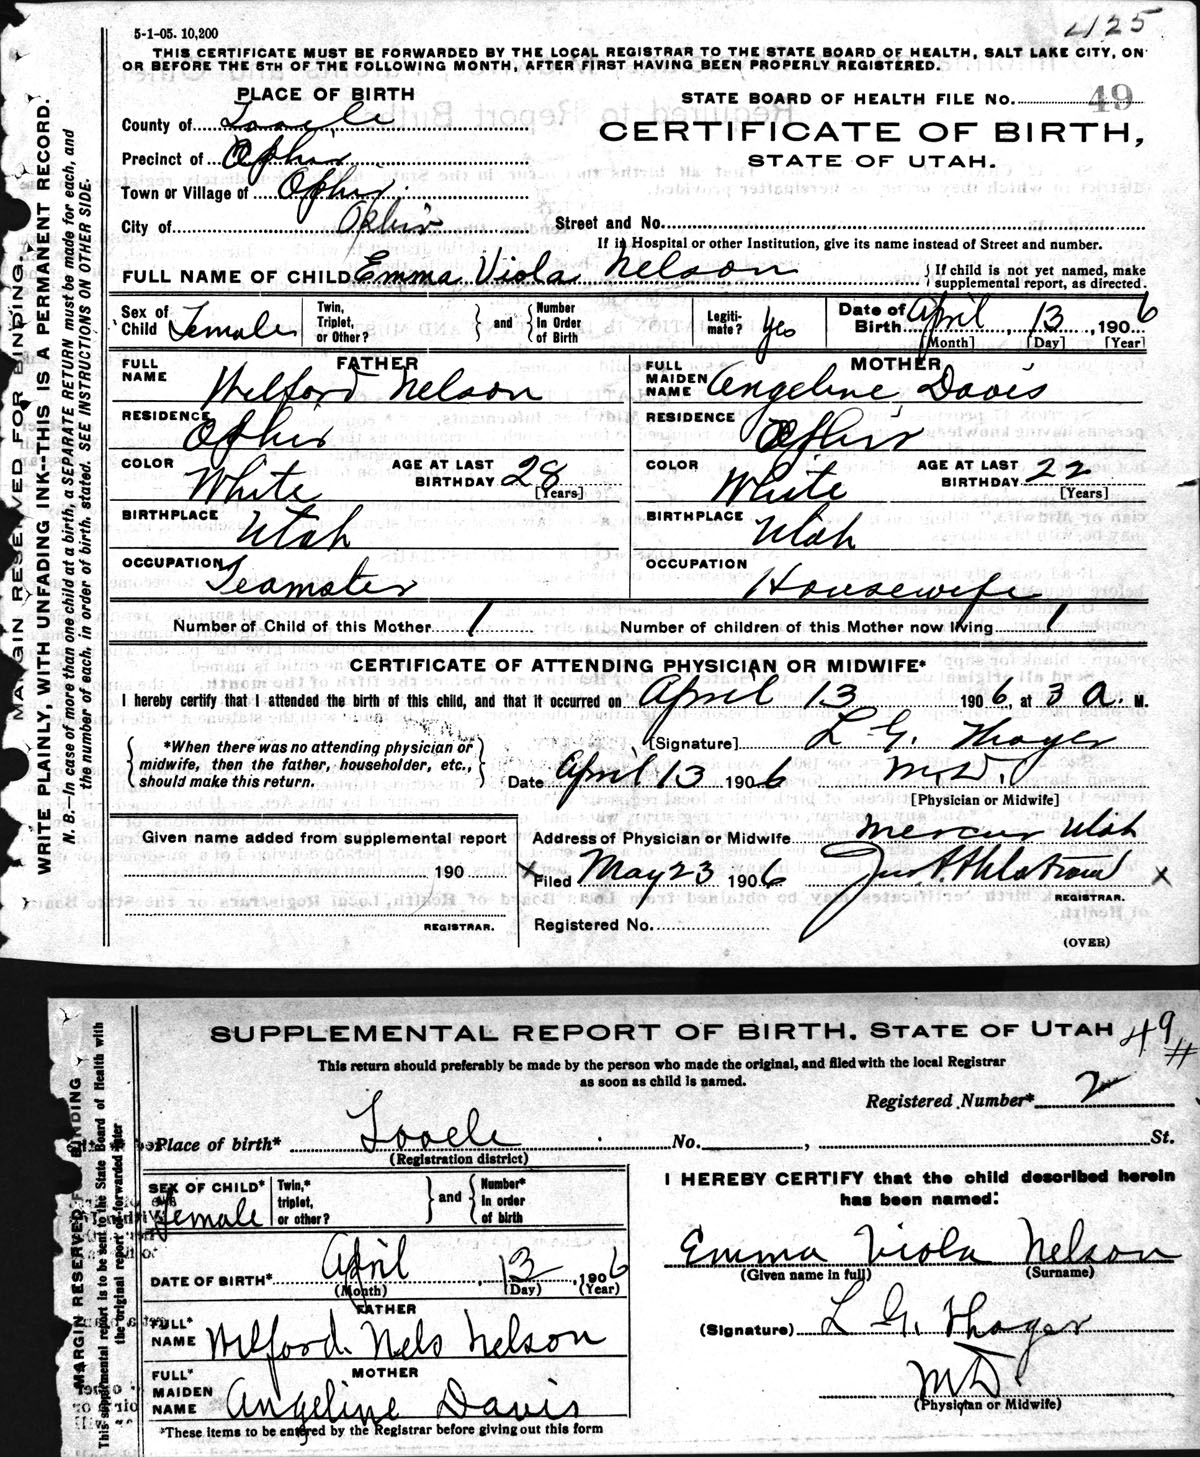 5-1-05. 10,200
4125
THIS CERTIFICATE MUST BE FORWARDED BY THE LOCAL REGISTRAR TO THE STATE BOARD OF HEALTH, SALT LAKE CITY, ON
OR BEFORE THE 5TH OF THE FOLLOWING MONTH, AFTER FIRST HAVING BEEN PROPERLY REGISTERED.
MARGIN RESERVED FOR BINDING.
WRITE PLAINLY, WITH UNFADING INK--THIS IS A PERMANENT RECORD.
N. B.--In case of more than one child at a birth, a SEPARATE RETURN must be made for each, and
the number of each, in order of birth, stated. SEE INSTRUCTIONS ON OTHER SIDE.
PLACE OF BIRTH
County of Tooele
Precinct of Ophir
Town or Village of Ophir
City of Ophir
STATE BOARD OF HEALTH FILE No. 49
CERTIFICATE OF BIRTH,
STATE OF UTAH.
Street and No.
If in Hospital or other Institution, give its name instead of Street and number.
FULL NAME OF CHILD Emma Viola Nelson
If child is not yet named, make
supplemental report, as directed.
Sex of
Child Female
Twin,
Triplet,
or Other?
and
Number
In Order
of Birth
Legiti-
mate? Yes
Date of
Birth April 13, 1906
[Month] [Day] [Year]
FATHER
FULL
NAME Wilford Nelson
RESIDENCE Ophir
COLOR White
AGE AT LAST
BIRTHDAY 28
[Years]
BIRTHPLACE Utah
OCCUPATION Teamster
MOTHER
FULL
MAIDEN
NAME Angeline Davis
RESIDENCE Ophir
COLOR White
AGE AT LAST
BIRTHDAY 22
[Years]
BIRTHPLACE Utah
OCCUPATION Housewife
Number of Child of this Mother 1
Number of children of this Mother now living 1
CERTIFICATE OF ATTENDING PHYSICIAN OR MIDWIFE*
I hereby certify that I attended the birth of this child, and that it occurred on April 13 1906, at 3 A. M.
*When there was no attending physician or
midwife, then the father, householder, etc.,
should make this return.
[Signature] L G. Thayer
Date April 13 1906 M.D.
[Physician or Midwife]
Given name added from supplemental report
190
REGISTRAR.
Address of Physician or Midwife Mercur Utah
x Filed May 23 1906 Jno. A. Ahlstrom x
REGISTRAR.
Registered No.
(OVER)
MARGIN RESERVED FOR BINDING
This supplemental report is to be sent to the State Board of Health with
the original report or forwarded later
SUPPLEMENTAL REPORT OF BIRTH, STATE OF UTAH
49
#
This return should preferably be made by the person who made the original, and filed with the local Registrar
as soon as child is named.
Registered Number* 2
Place of birth* Tooele No. , St.
(Registration district)
SEX OF CHILD*
Female
Twin,*
triplet,
or other?
and
Number*
in order
of birth
DATE OF BIRTH* April, 13, 1906
(Month) (Day) (Year)
FATHER
FULL*
NAME Wilford. Nels Nelson
MOTHER
FULL*
MAIDEN
NAME Angeline Davis
*These items to be entered by the Registrar before giving out this form
I HEREBY CERTIFY that the child described herein
has been named:
Emma Viola Nelson
(Given name in full) (Surname)
(Signature) L G. Thayer
MD.
(Physician or Midwife)